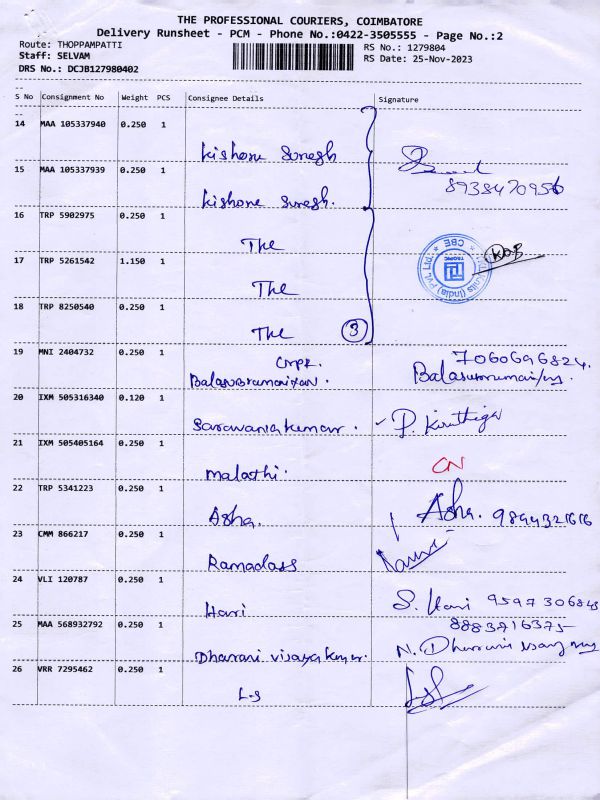 THE PROFESSIONAL COURIERS, COIMBATORE
Delivery Runsheet - PCM - Phone No.:0422-3505555 - Page No.:2
Route: THOPPAMPATTI RS No.: 1279804
Staff: SELVAM RS Date: 25-Nov-2023
DRS No.: DCJB127980402
S No Consignment No Weight PCS Consignee Details Signature
14 MAA 105337940 0.250 1 Kishore Suresh
15 MAA 105337939 0.250 1 Kishore Suresh. 8938470956
16 TRP 5902975 0.250 1 The
17 TRP 5261542 1.150 1 The
18 TRP 8250540 0.250 1 The 3
19 MNI 2404732 0.250 1 Balasubramaniyan. 7060696824.
20 IXM 505316340 0.120 1 Saravanakumar. P. Kiruthiga
21 IXM 505405164 0.250 1 Malathi. CN
22 TRP 5341223 0.250 1 Asha. Asha. 9844321616
23 CMM 866217 0.250 1 Ramadass
24 VLI 120787 0.250 1 Hari S. Hari
25 MAA 568932792 0.250 1 Dharani Vijayakumar. 8883916375
26 VRR 7295462 0.250 1 L-S